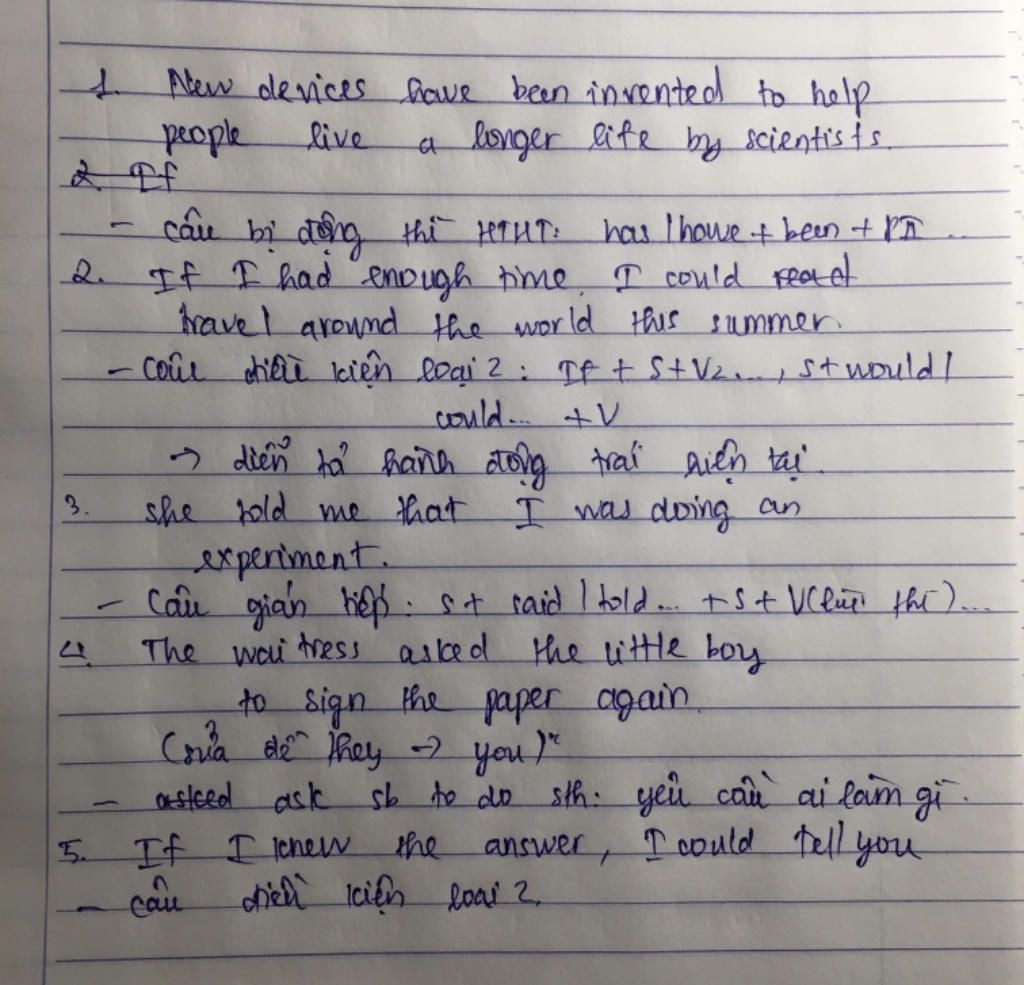 1. New devices have been invented to help
people live a longer life by scientists.
2. If
- câu bị động thì HTHT: has / have + been + PII ...
2. If I had enough time, I could
travel around the world this summer.
- câu điều kiện loại 2 : If + S + V2..., S + would /
could... + V
→ diễn tả hành động trái hiện tại.
3. she told me that I was doing an
experiment.
- Câu gián tiếp : S + said / told... + S + V (lùi thì)...
4. The waitress asked the little boy
to sign the paper again.
(sửa đề they → you)
- asked ask sb to do sth : yêu cầu ai làm gì.
5. If I knew the answer, I could tell you
- câu điều kiện loại 2.